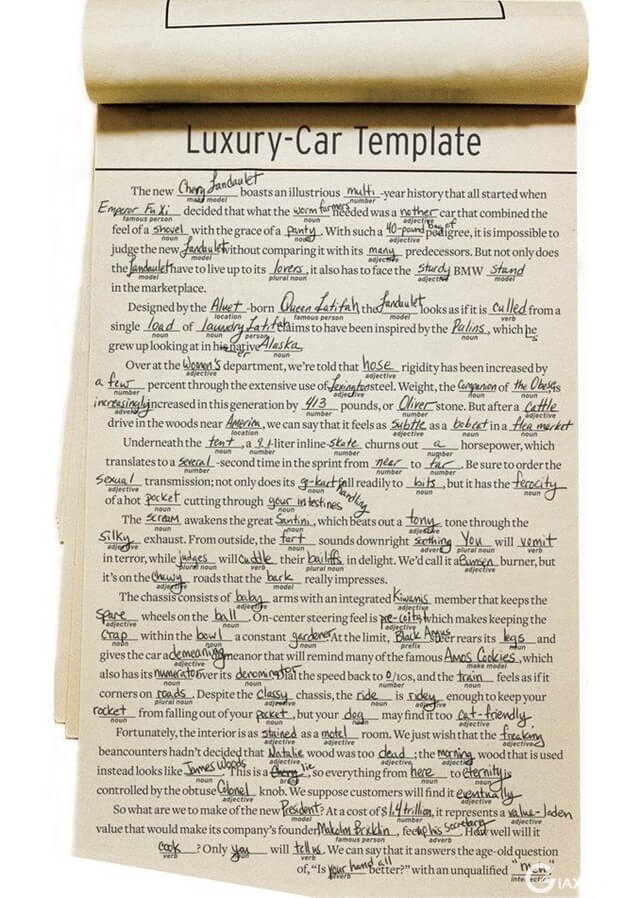 Luxury-Car Template
The new Chery Landaulet boasts an illustrious multi-year history that all started when
make model number
Emperor Fu Xi decided that what the worm farmers needed was a nother car that combined the
famous person noun adjective
feel of a shovel with the grace of a panty. With such a 40-pound bag of pedigree, it is impossible to
noun noun adjective
judge the new Landaulet without comparing it with its many predecessors. But not only does
model adjective
the Landaulet have to live up to its lovers, it also has to face the sturdy BMW stand
model plural noun adjective model
in the marketplace.
Designed by the Aluet-born Queen Latifah the Landaulet looks as if it is culled from a
location famous person model verb
single load of laundry Latifah claims to have been inspired by the Palins, which he
noun noun person noun
grew up looking at in his er native Alaska
noun
Over at the Women's department, we're told that hose rigidity has been increased by
adjective adjective
a few percent through the extensive use of Lexington steel. Weight, the Companion of the Obese is
number adjective noun noun
increasingly increased in this generation by 413 pounds, or Oliver stone. But after a cattle
adverb number number adjective
drive in the woods near America, we can say that it feels as subtle as a bobcat in a flea market
location adjective noun noun
Underneath the tent, a 9.1-liter inline-skate churns out a horsepower, which
noun number number number
translates to a several-second time in the sprint from near to far. Be sure to order the
number number number
sexual transmission; not only does its go-kart handling fall readily to bits, but it has the ferocity
adjective noun noun noun
of a hot pocket cutting through your intestines
noun noun
The scream awakens the great Santini, which beats out a tony tone through the
noun noun adjective
silky exhaust. From outside, the fart sounds downright soothing You will vomit
adjective noun adverb plural noun verb
in terror, while judges will cuddle their bailiffs in delight. We'd call it a Bunsen burner, but
plural noun verb plural noun adjective
it's on the chewy roads that the bark really impresses.
adjective model
The chassis consists of baby arms with an integrated Kiwanis member that keeps the
adjective adjective
spare wheels on the ball. On-center steering feel is pre-coitu, which makes keeping the
adjective noun adjective
crap within the bowl a constant gardener At the limit, Black Angus steer rears its legs and
noun noun adjective prefix noun
gives the car a demeaning demeanor that will remind many of the famous Amos Cookies, which
adjective make model
also has its numerator over its denominator dial the speed back to 0/10s, and the train feels as if it
noun noun number noun
corners on roads. Despite the classy chassis, the ride is ridey enough to keep your
plural noun adjective noun adjective
rocket from falling out of your pocket, but your dog may find it too cat-friendly.
noun noun noun adjective
Fortunately, the interior is as stained as a motel room. We just wish that the freaking
adjective adjective adjective
beancounters hadn't decided that Natalie wood was too dead; the morning wood that is used
adjective adjective adjective
instead looks like James Woods This is a Chery lie, so everything from here to eternity is
noun brand noun noun
controlled by the obtuse Colonel knob. We suppose customers will find it eventually
adjective adjective
So what are we to make of the new President? At a cost of $1.4 trillion, it represents a value-laden
model number adjective
value that would make its company's founder Malcolm Bricklin, feel up his secretary. How well will it
famous person adverb
cook? Only you will tell us. We can say that it answers the age-old question
verb noun verb
of, "Is your hand all better?" with an unqualified "meh."
adverb interjection